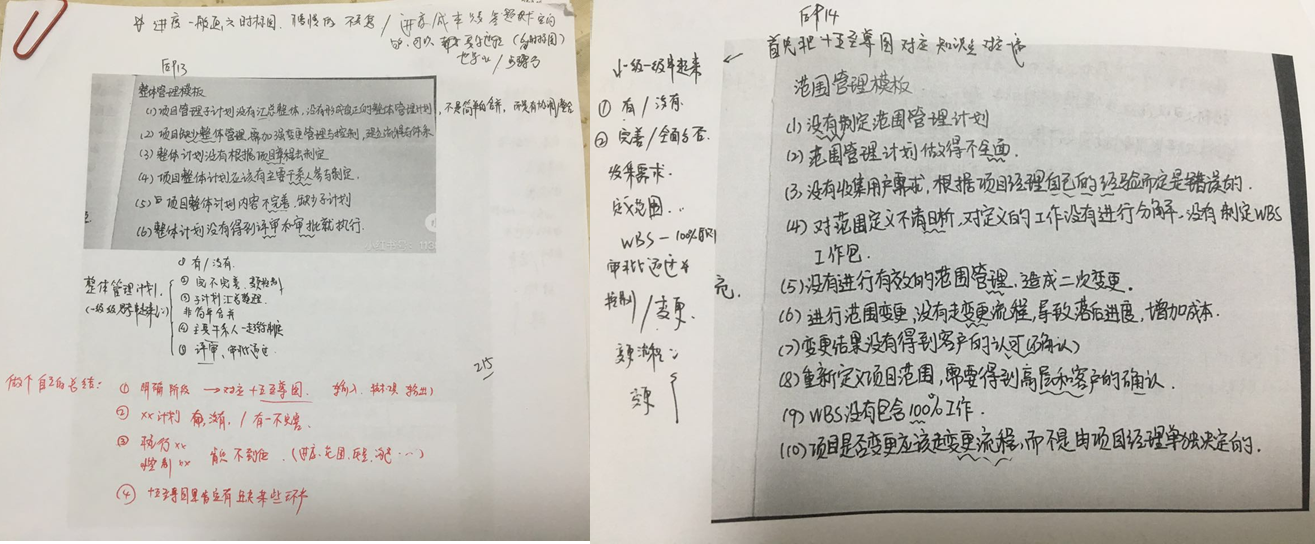 进度一般画之时标图
进度/成本
图13
整体管理模板
(1)项目管理子计划没有汇总整体,没有形成真正的整体管理计划,不是简单的合并,而是有协调/整合
(2)项目缺少整体管理,需加强变更管理与控制,建立
(3)整体计划没有根据项目章程去制定.
(4)项目整体计划应该有主管干系人参与制定.
(5)项目整体计划内容不完善,缺少子计划
(6)整体计划没有得到评审和审批就执行.
整体管理计划.
① 有/没有.
② 完不完善
③ 子计划汇总整理.
非简单合并
④ 主要干系人一起编制
⑤ 评审、审批通过
215
做个自己的总结:
① 明确阶段 → 对应十五至尊图. 输入、技术、输出)
② xx计划 有没有. / 有—不完善.
③ 执行xx
控制xx 不到位.(进度、范围、质量、沟通…)
④ 十五至尊图里肯定有且缺某些环节
图14
首先把十五至尊图对应知识点对应
小一级一级串起来
① 有/没有.
② 完善/全面与否.
收集需求.
定义范围...
WBS—100%原则
审批通过
控制/变更.
变更流程:
变更
范围管理模板
(1)没有制定范围管理计划
(2)范围管理计划做得不全面.
(3)没有收集用户需求,根据项目经理自己的经验而定是错误的.
(4)对范围定义不清晰,对定义的工作没有进行分解,没有制定WBS
工作包.
(5)没有进行有效的范围管理,造成二次变更.
(6)进行范围变更,没有走变更流程,导致落后进度,增加成本.
(7)变更结果没有得到客户的认可(确认)
(8)重新定义项目范围,需要得到高层和客户的确认.
(9)WBS没有包含100%工作.
(10)项目是否变更应该走变更流程,而不是由项目经理单独决定的.